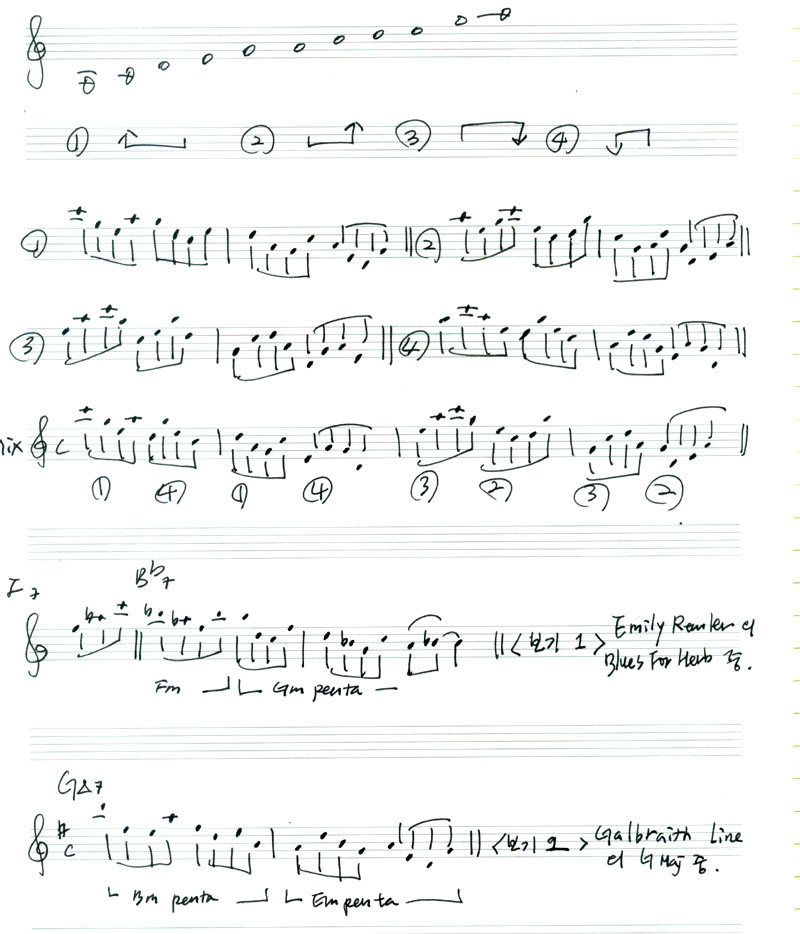 ① ② ③ ④
① ②
③ ④
mix C
① ④ ① ④ ③ ② ③ ②
F7 Bb7
Fm Gm penta
<보기 1> Emily Remler의
Blues For Herb 중.
G△7
C
Bm penta Em penta
<보기 2> Galbraith Line
의 G Maj 중.